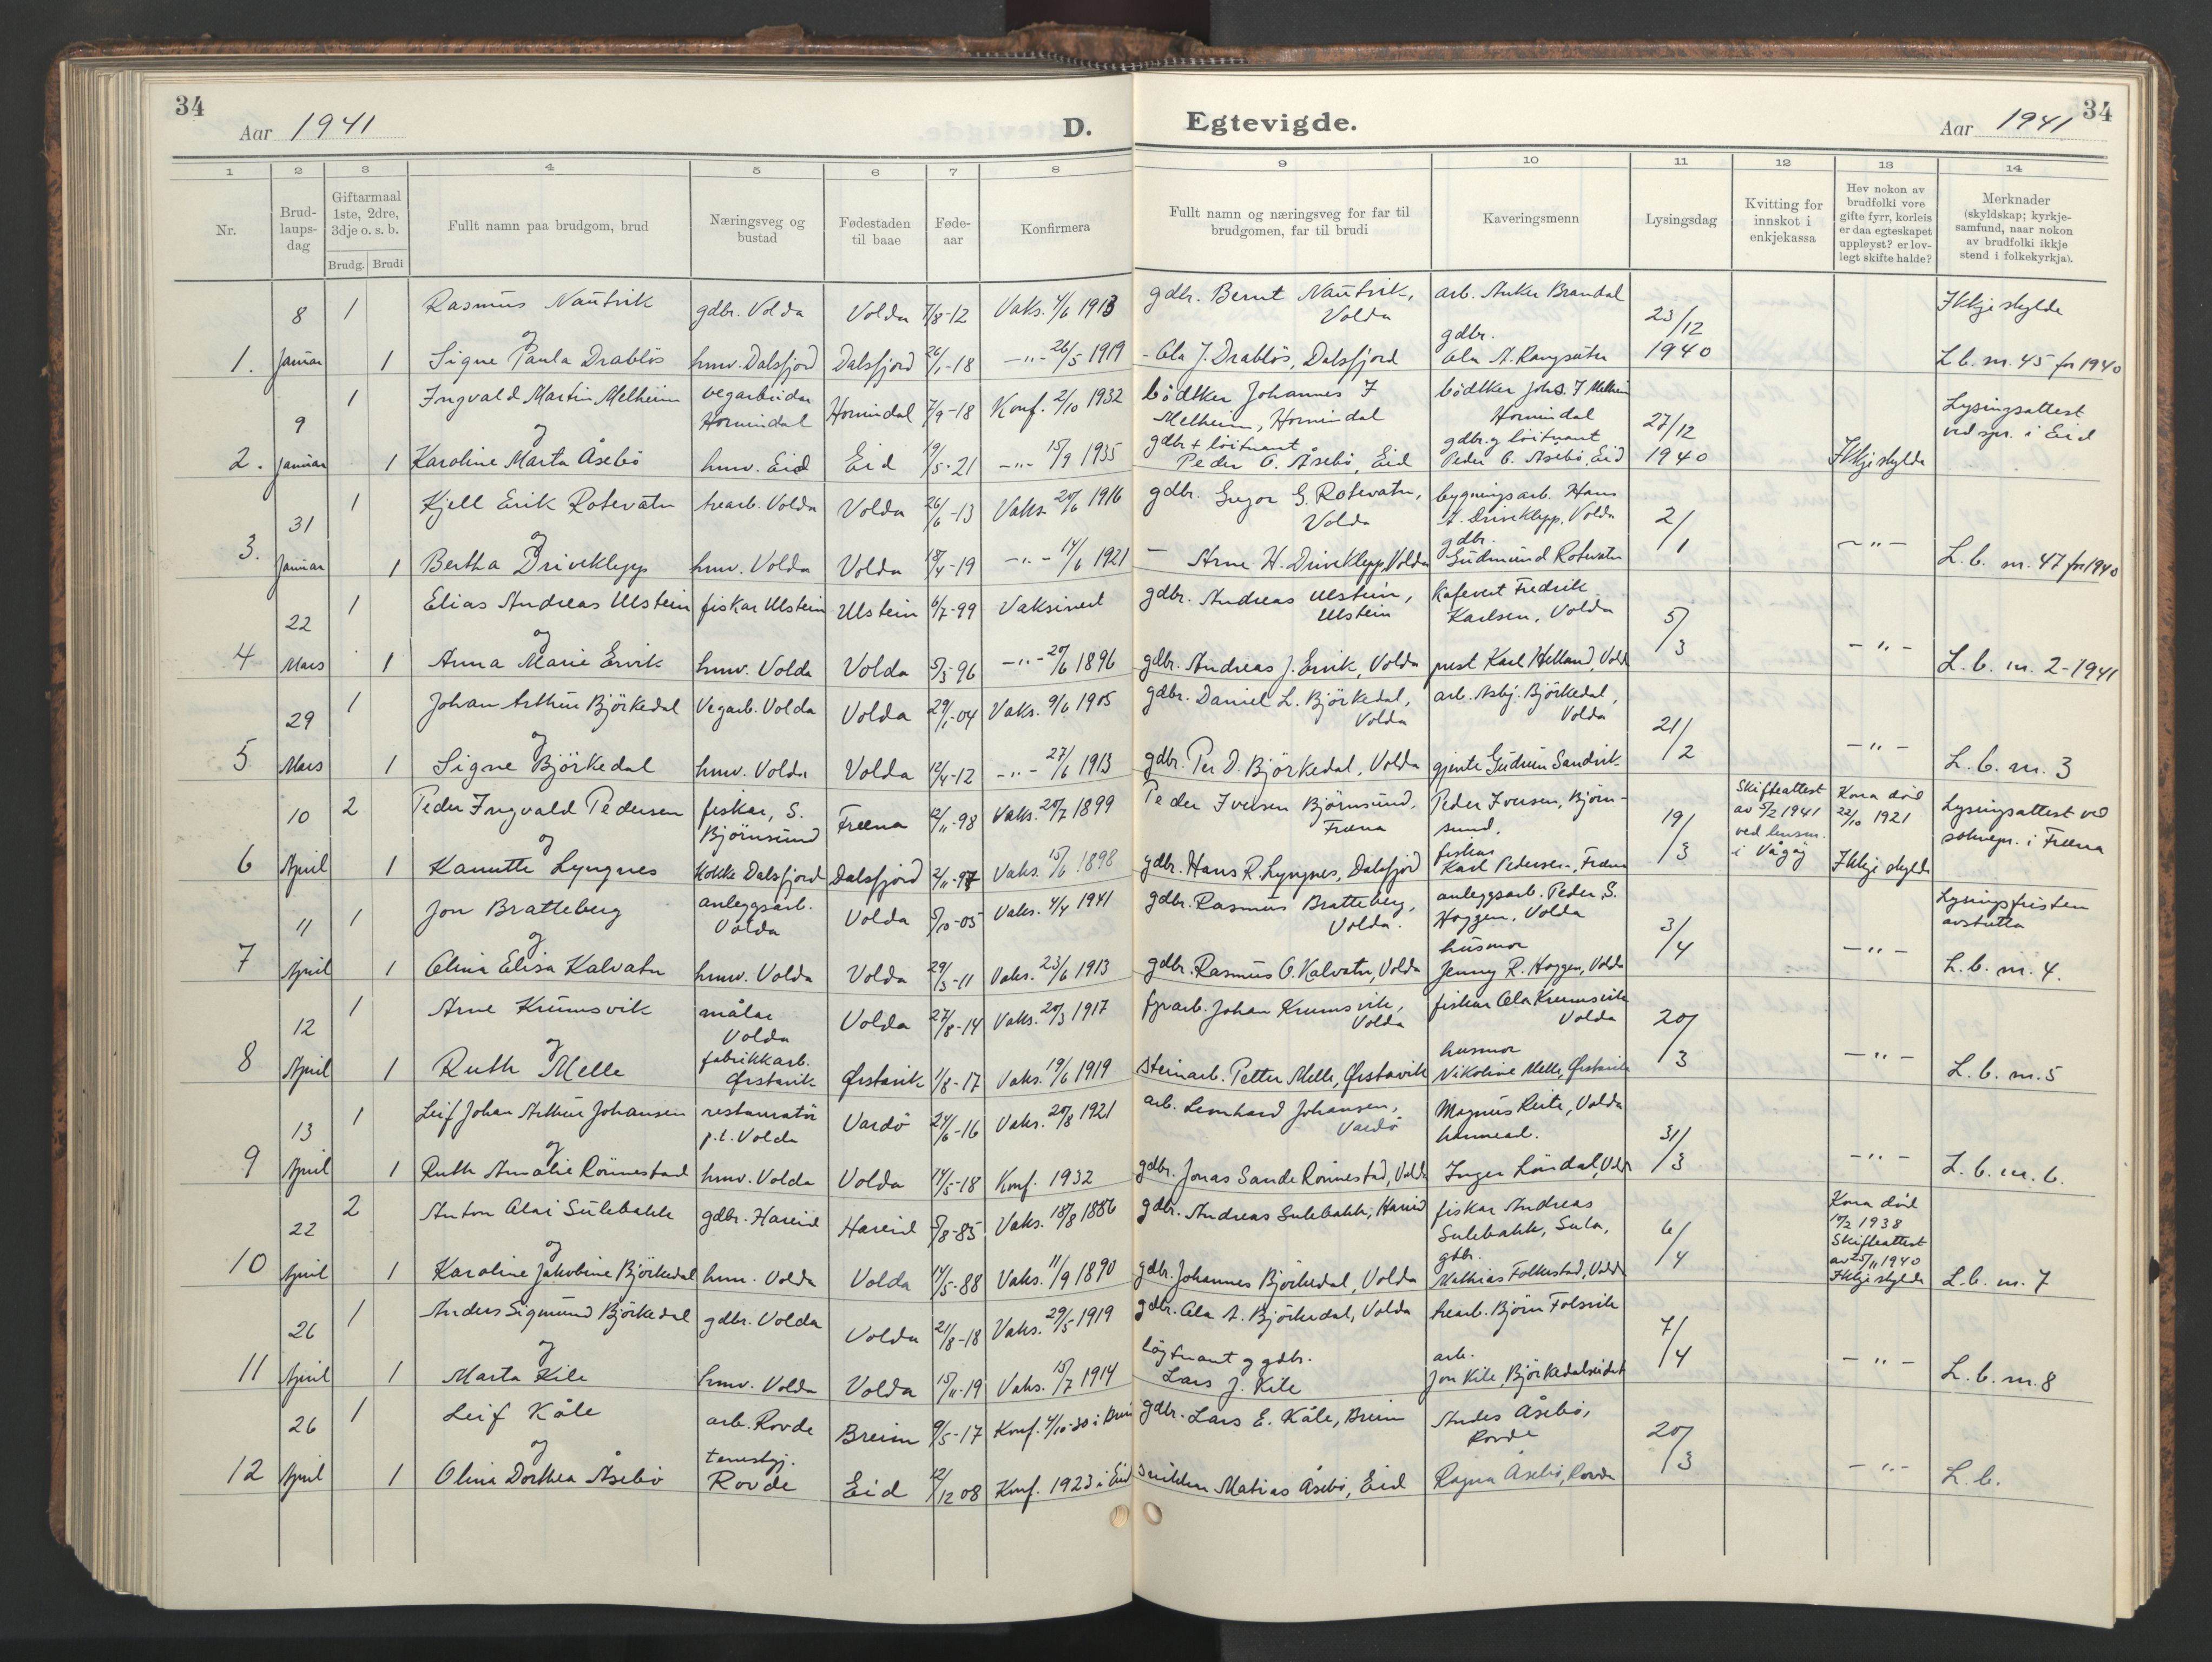 34
Aar 1941
D.
Egtevigde.
Aar 1941
34
1 2 3 4 5 6 7 8 9 10 11 12 13 14
Nr.
Brud-
laups-
dag
Giftarmaal
1ste, 2dre,
3dje o. s. b.
Brudg. Brudi
Fullt namn paa brudgom, brud
Næringsveg og
bustad
Fødestaden
til baae
Føde-
aar
Konfirmera
Fullt namn og næringsveg for far til
brudgomen, far til brudi
Kaveringsmenn
Lysingsdag
Kvitting for
innskot i
enkjekassa
Hev nokon av
brudfolki vore
gifte fyrr, korleis
er daa egteskapet
uppløyst? er lov-
legt skifte halde?
Merknader
(skyldskap; kyrkje-
samfund, naar nokon
av brudfolki ikkje
stend i folkekyrkja).
8 1 Rasmus Nautvik gdbr. Volda Volda 7/8-12 Vaks. 4/6 1913 gdbr. Bernt Nautvik, Volda arb. Anker Brandal 23/12 Ikkje skylde
og
1. Januar 1 Signe Paula Drabløs hmv. Dalsfjord Dalsfjord 26/1-18 -"- 26/5 1919 - Ola J. Drabløs, Dalsfjord gdbr. Ola A. 1940 L.b. nr. 45 for 1940
9 1 Ingvald Martin Melheim vegarbeidar Hornindal Hornindal 7/9-18 Konf. 2/10 1932 bödtker Johannes J Melheim, Hornindal bödtker Johs. J Melheim Hornindal 27/12 Lysingsattest ved spr. i Eid
og
2. Januar 1 Karoline Marta Åsebö hmv. Eid Eid 19/5-21 -"- 15/9 1935 gdbr + löitnant Peder O. Åsebö, Eid gdbr. og löitnant Peder O. Åsebö, Eid 1940 Ikkje skylde
31 1 Kjell Erik Rotevatn trearb. Volda Volda 26/6-13 Vaks. 20/6 1916 gdbr. Gregor G. Rotevatn, Volda bygningsarb. Hans A. Driveklepp, Volda 2/1
og
3. Januar 1 Bertha Driveklepp hmv. Volda Volda 18/4-19 -"- 14/6 1921 - Arne H. Driveklepp, Volda gdbr. Gudmund Rotevatn -"- L.b. nr. 47 for 1940
22 1 Elias Andreas Ulstein fiskar Ulstein Ulstein 6/7-99 Vaksinert gdbr. Andreas Ulstein, Ulstein kafevert Fredrik Karlsen, Volda 5/3
og
4 Mars 1 Anna Marie Ervik hmv. Volda Volda 5/3-96 -"- 20/6 1896 gdbr. Andreas J. Ervik, Volda prest Karl Helland, Volda -"- L.b. nr. 2-1941
29 1 Johan Arthur Björkedal Vegarb. Volda Volda 29/1-04 Vaks. 9/6 1905 gdbr. Daniel L. Björkedal, Volda arb. Asbj. Björkedal, Volda 21/2
og
5 Mars 1 Signe Björkedal hmv. Volda Volda 12/4-12 -"- 27/6 1913 gdbr. Per D. Björkedal, Volda gjente Gudrun Sandvik -"- L.b. nr. 3
10 2 Peder Ingvald Pedersen fiskar, S. Björnsund Fræna 12/11-98 Vaks. 20/7 1899 Peder Iversen Björnsund, Fræna Peder Iversen, Björnsund. 19/3 Skifteattest av 5/2 1941 ved lensm. i Vågøy Kona död 22/10 1921 Lysingsattest ved soknepr. i Fræna
og
6 April 1 Kanutte Lyngnes Kokke Dalsfjord Dalsfjord 2/11-97 Vaks. 15/6 1898 gdbr. Hans R. Lyngnes, Dalsfjord fiskar Karl Pedersen, Fræna Ikkje skylde
11 1 Jon Bratteberg anleggsarb. Volda Volda 5/10-05 Vaks. 4/4 1941 gdbr. Rasmus Bratteberg, Volda. anleggsarb. Peder S. Hoggen, Volda 3/4 Lysingsfristen avstutta
og
7 April 1 Olina Elisa Kalvatn hmv. Volda Volda 29/3-11 Vaks. 23/6 1913 gdbr. Rasmus O. Kalvatn, Volda husmor Jenny R. Hoggen, Volda -"- L.b. nr. 4.
12 1 Arne Krumsvik målar Volda Volda 27/8-14 Vaks. 20/3 1917 Johan Krumsvik, Volda fiskar Ola Krumsvik Volda 20/3
og
8 April 1 Ruth Melle fabrikkarb. Ørstavik Ørstavik 1/8-17 Vaks. 19/6 1919 Steinarb. Petter Melle, Ørstavik husmor Nikoline Melle, Ørstavik -"- L.b. nr. 5
13 1 Leif Johan Arthur Johansen restauratör p.t. Volda Vardö 24/6-16 Vaks. 20/8 1921 arb. Leonhard Johansen, Vardö Magnus Reite, Volda 31/3
og
9 April 1 Ruth Amalie Rönnestad hmv. Volda Volda 14/5-18 Konf. 1932 gdbr. Jonas Sande Rönnestad, Volda Inger Löndal, Volda -"- L.b. nr. 6.
22 2 Anton Olai Sulebakk gdbr. Hareid Hareid 5/8-85 Vaks. 18/8 1886 gdbr. Andreas Sulebakk, Hareid fiskar Andreas Sulebakk, Sula, 6/4 Kona död 10/2 1938 Skifteattest av 25/11 1940 Ikkje skylde
og
10 April 1 Karoline Jakobine Björkedal hmv. Volda Volda 14/5-88 Vaks. 11/9 1890 gdbr. Johannes Björkedal, Volda gdbr. Mathias Folkestad, Volda L.b. nr. 7
26 1 Anders Sigmund Björkedal gdbr. Volda Volda 21/8-18 Vaks. 29/5 1919 gdbr. Ola A. Björkedal, Volda trearb. Björn Folsvik 7/4
og
11 April 1 Marta Kile hmv. Volda Volda 15/11-19 Vaks. 15/7 1914 löytnant og gdbr. Lars J. Kile arb. Jon Kile, Björkedalseidet -"- L.b. nr. 8
26 1 Leif Kåle arb. Rovde Breim 9/5-17 Konf. 4/10-30 i Breim gdbr. Lars E. Kåle, Breim Anders Åsebö, Rovde 20/3
og
12 April 1 Olina Dorthea Åsebö tenestgj. Rovde Eid 12/12 08 Konf. 1923 i Eid Matias Åsebö, Eid Ragna Åsebö, Rovde -"- L.b.